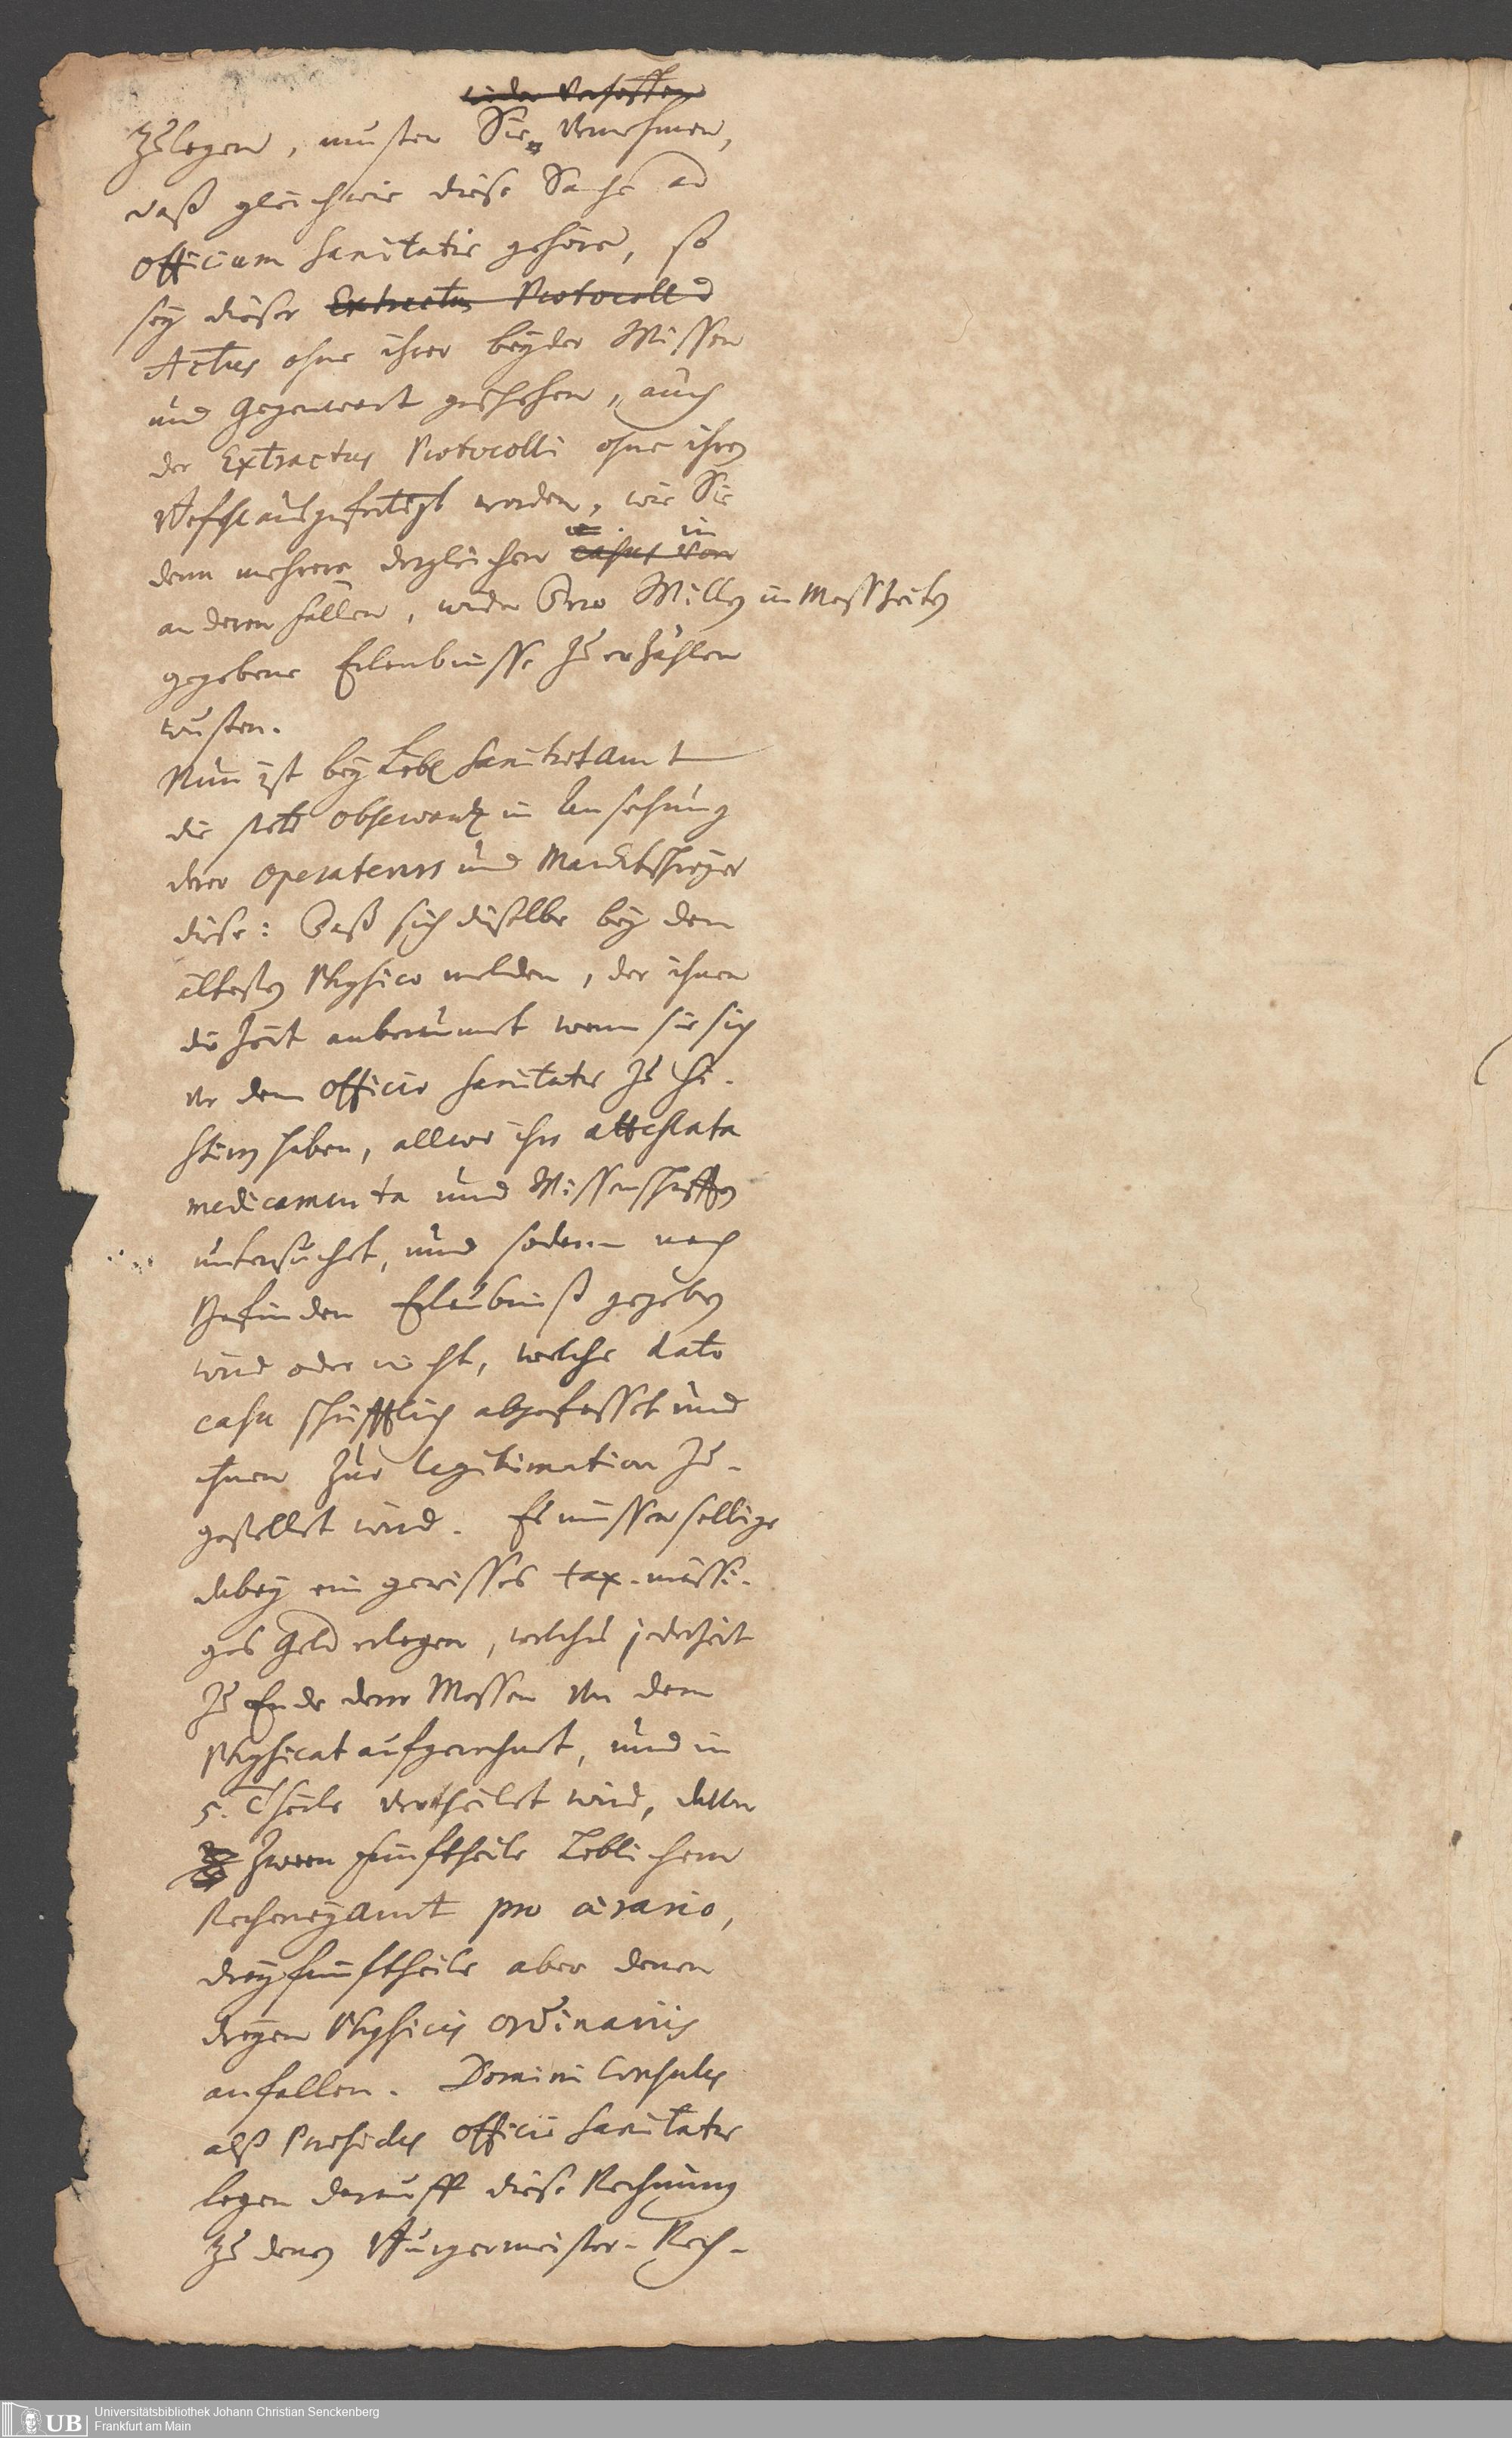 wieder Verhoffen
Zulegen, musten Sie vernehmen,
daß gleichwie diese Sache ad
officium Sanitatis gehöre, so
sey dieser Extractus Protocoll
Actus ohne ihrer beyder Wissen
und Gegenwart geschehen, auch
der Extractus Protocolli ohne ihren
Befehl ausgefertigt worden, wie Sie
denn mehrere dergleichen casus von in
anderen fällen, wider Dero Willen in Messzeiten
gegebene Erlaubnisse zu erzählen
wusten.
Nun ist bey Löbl Sanitætamt
die stete Observantz in Ansehung
derer Operateurs und Marcktschreyer
diese: Daß sich dieselbe bey dem
ältesten Physico melden, der ihnen
die Zeit anberaumet wenn sie sich
vor dem Officio Sanitatis zu si-
stiren haben, allwo ihre attestata
medicamenta und Wissenschafften
untersuchet, und sodann nach
Befinden Erlaubniß gegeben
wird oder nicht, welche dato
casu schrifftlich abgefasset und
ihnen zur Legitimation zu-
gestellet wird. Es müssen selbige
dabey ein gewisses tax-mässi-
ges Geld erlegen, welches jederzeit
zu Ende derer Messen von dem
Physicat aufgerechnet, und in
5. Theile vertheilet wird, davon
zween fünftheile Löblichem
Recheneyamt pro ærario,
drey fünftheile aber denen
dreyen Physicis ordinariis
anfallen. Domini Consules
alß Præsides Officii Sanitatis
legen darauff diese Rechnung
zu denen Burgermeister-Rech-
Universitätsbibliothek Johann Christian Senckenberg
Frankfurt am Main